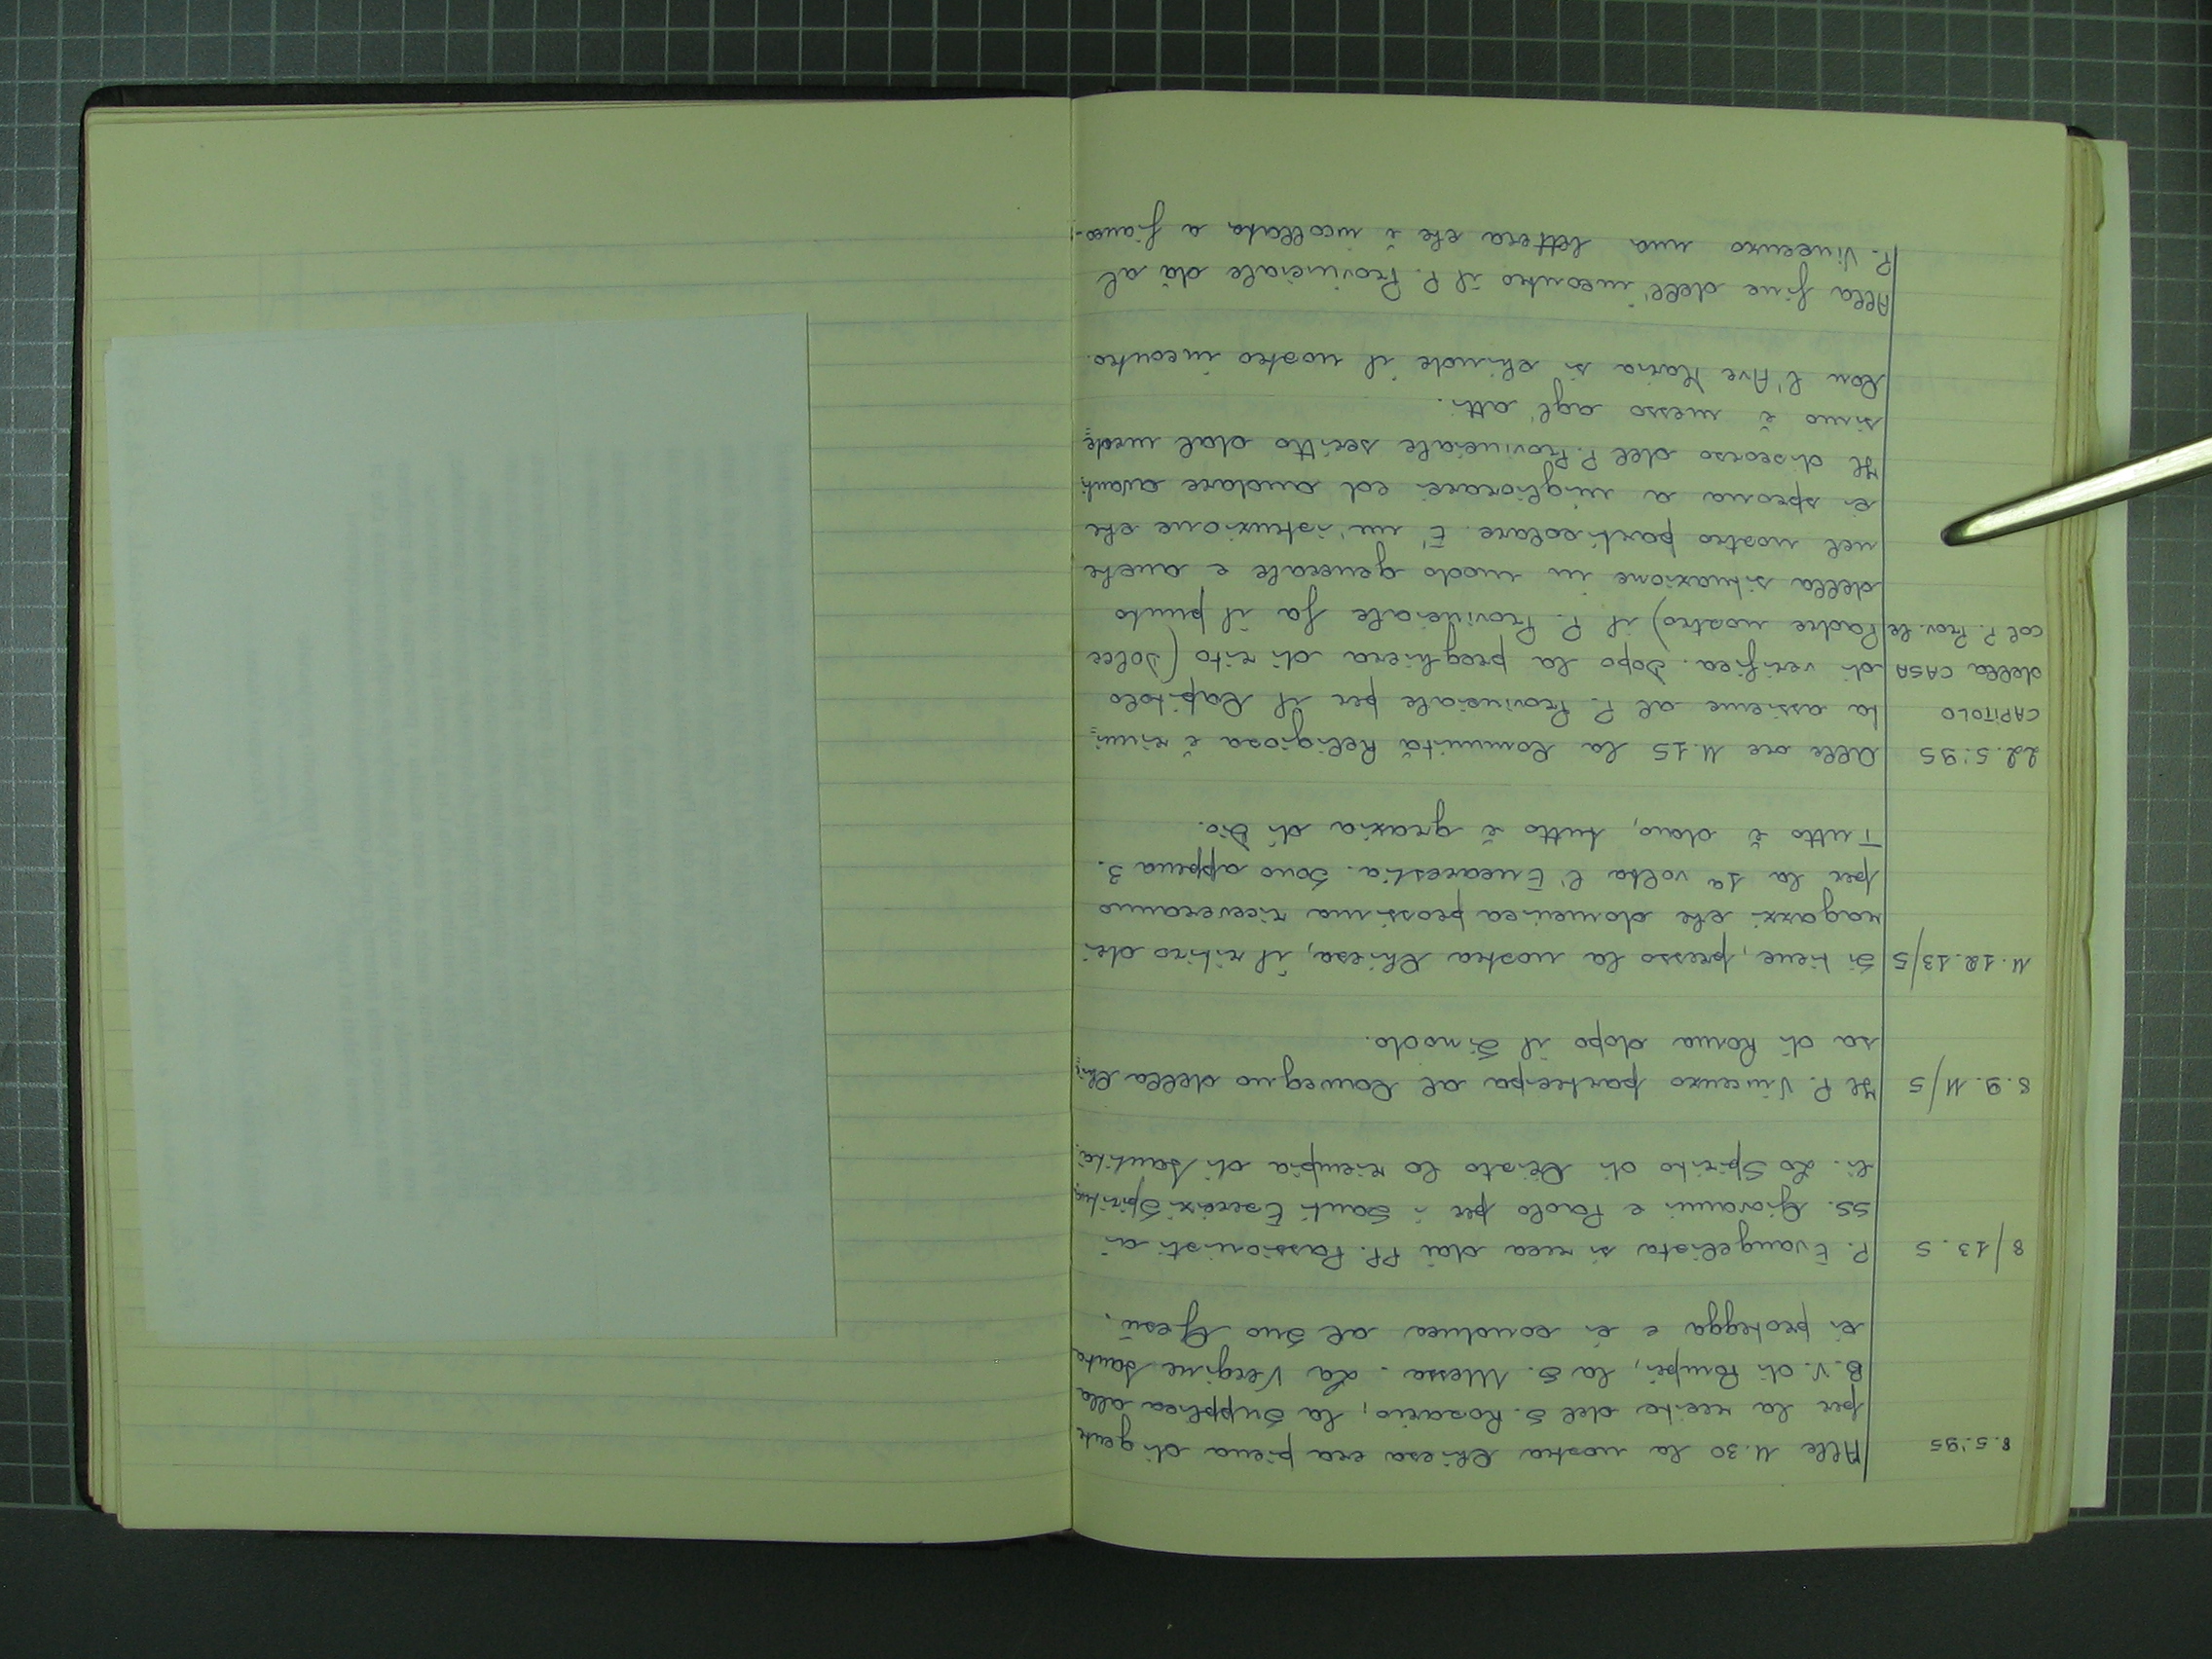 8.5.'95 Alle 11.30 la nostra Chiesa era piena di gente
per la recita del S. Rosario, la Supplica alla
B.V. di Pompei, la S. Messa. La Vergine Santa
ci protegga e ci conduca al Suo Gesù.
8/13.5 P. Evangelista si reca dai PP. Passionisti ai
SS. Giovanni e Paolo per i Santi Esercizi Spiritua
li. Lo Spirito di Cristo lo riempia di Santità.
8.9.11/5 Il P. Vincenzo partecipa al Convegno della Chie
sa di Roma dopo il Sinodo.
11.12.13/5 Si tiene, presso la nostra Chiesa, il ritiro dei
ragazzi che domenica prossima riceveranno
per la 1ª volta l'Eucarestia. Sono appena 3.
Tutto è dono, tutto è grazia di Dio.
22.5.'95 Alle ore 11.15 la Comunità Religiosa è riuni
CAPITOLO ta assieme al P. Provinciale per il Capitolo
della CASA di verifica. Dopo la preghiera di rito (Dolce
col P. Prov.le Padre nostro) il P. Provinciale fa il punto
della situazione in modo generale e anche
nel nostro particolare. E' un'istruzione che
ci sprona a migliorarci ed andare avanti.
Il discorso del P. Provinciale scritto dal mede
simo è messo agl'atti.
Con l'Ave Maria si chiude il nostro incontro.
Alla fine dell'incontro il P. Provinciale dà al
P. Vincenzo una lettera che è incollata a fianco